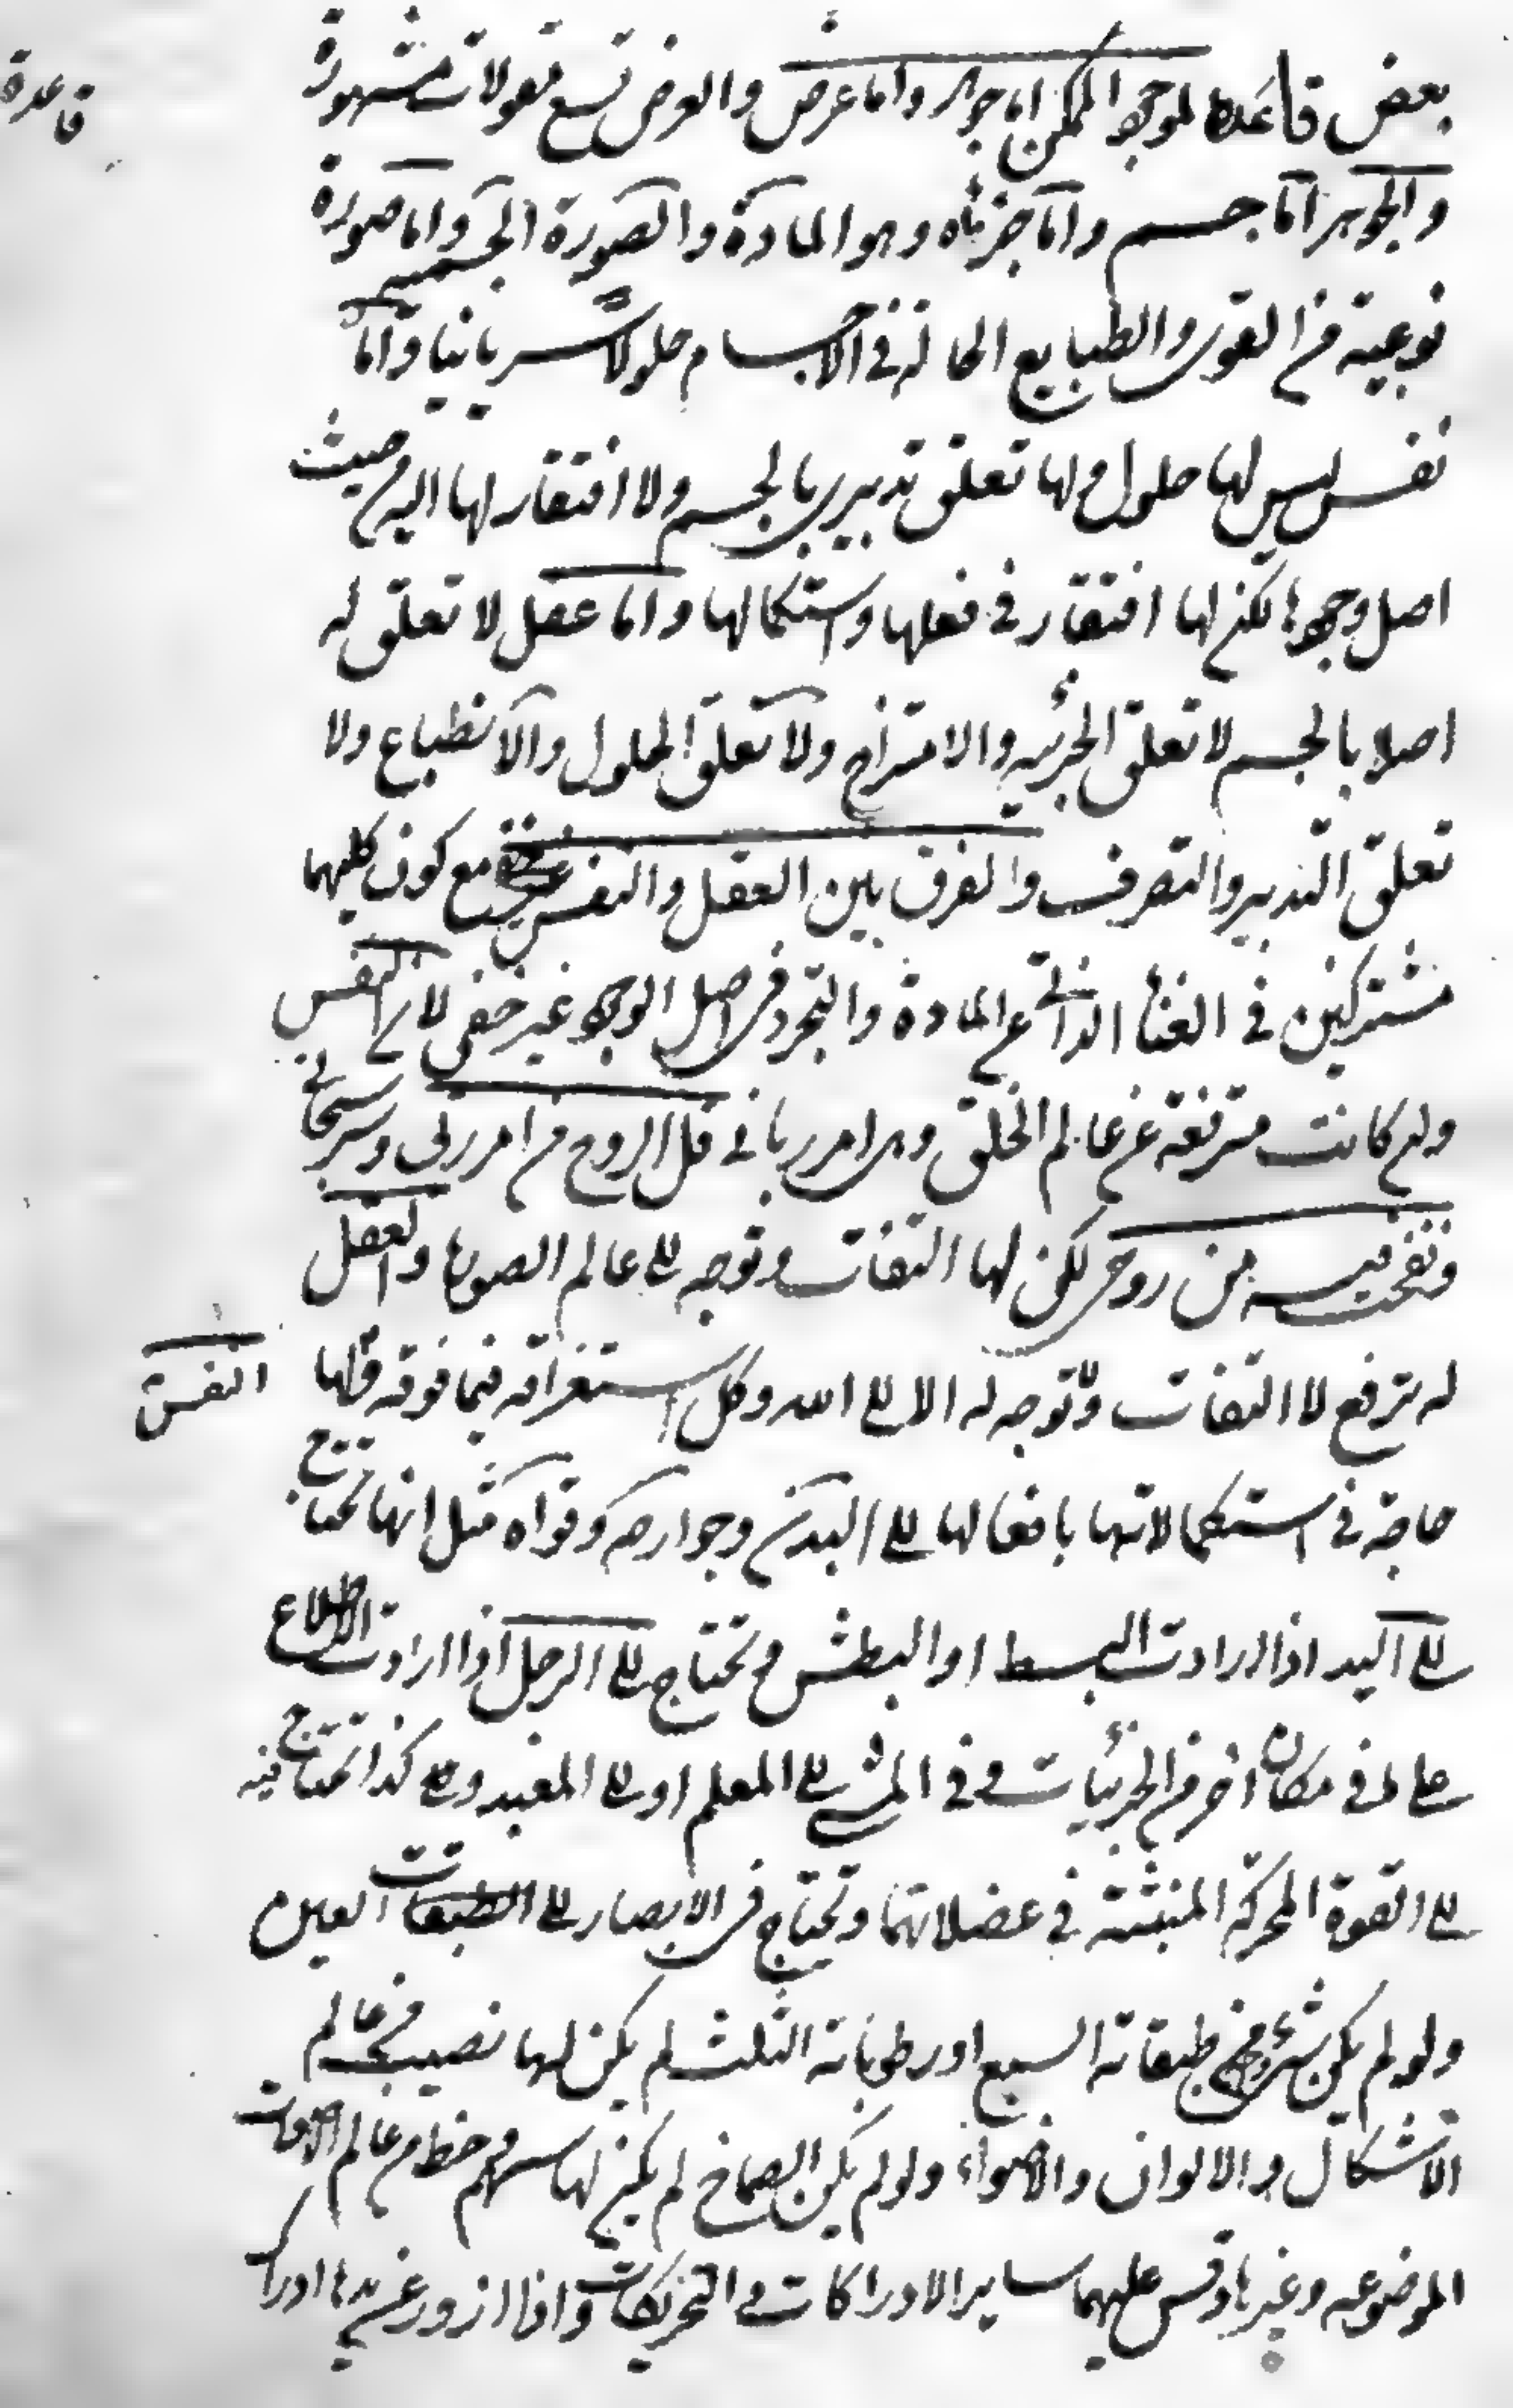 قاعدة
بعض قاعدة الموجود الممكن اما جوهر واما عرض والعرض تسع مقولات مشهورة
والجوهر اما جسم واما جزئاه وهو المادة والصورة الجسمية واما صورة
نوعية من القوى والطبايع الحالة في الاجسام حلولا سريانيا واما
نفس ليس لها حلول ولها تعلق تدبيري بالجسم ولا افتقار لها اليه من حيث
اصل وجودها لكن لها افتقار في فعلها واستكمالها واما عقل لا تعلق له
اصلا بالجسم لا تعلق الجزئية والامتزاج ولا تعلق الحلول والانطباع ولا
تعلق التدبير والتصرف والفرق بين العقل والنفس مع كون كليهما
مشتركين في الغناء الذاتي عن المادة والتجرد في اصل الوجود غير خفي لان النفس
وان كانت مترفعة عن عالم الخلق وهي امر رباني قل الروح من امر ربي وسر سبحاني
ونفخت فيه من روحي لكن لها التفات وتوجه الى عالم الصورة والعقل
له ترفع لا التفات ولا توجه له الا الى الله وكل استغراقه فيما فوقه فلها
النفس
حاجة في استكمالاتها بافعالها الى البدن وجوارحه وقواه مثل انها تحتاج
الى اليد اذا ارادت البسط او البطش وتحتاج الى الرجل اذا ارادت الاطلاع
على ما في مكان اخر من الجزئيات وفي المشي الى المعلم او الى المعبد وعلى كذا تحتاج فيه
الى القوة المحركة المنبثة في عضلاتها وتحتاج في الابصار الى الطبقات العين
ولو لم يكن شيء من طبقاته السبع او رطوباته الثلث لم يكن لها نصيب من عالم
الاشكال والالوان والاضواء ولو لم يكن الصماخ لم يكن لها سهم وحظ من عالم الاصوات
الموضوعه وغيرها وقس عليهما ساير الادراكات والتحريكات واذا